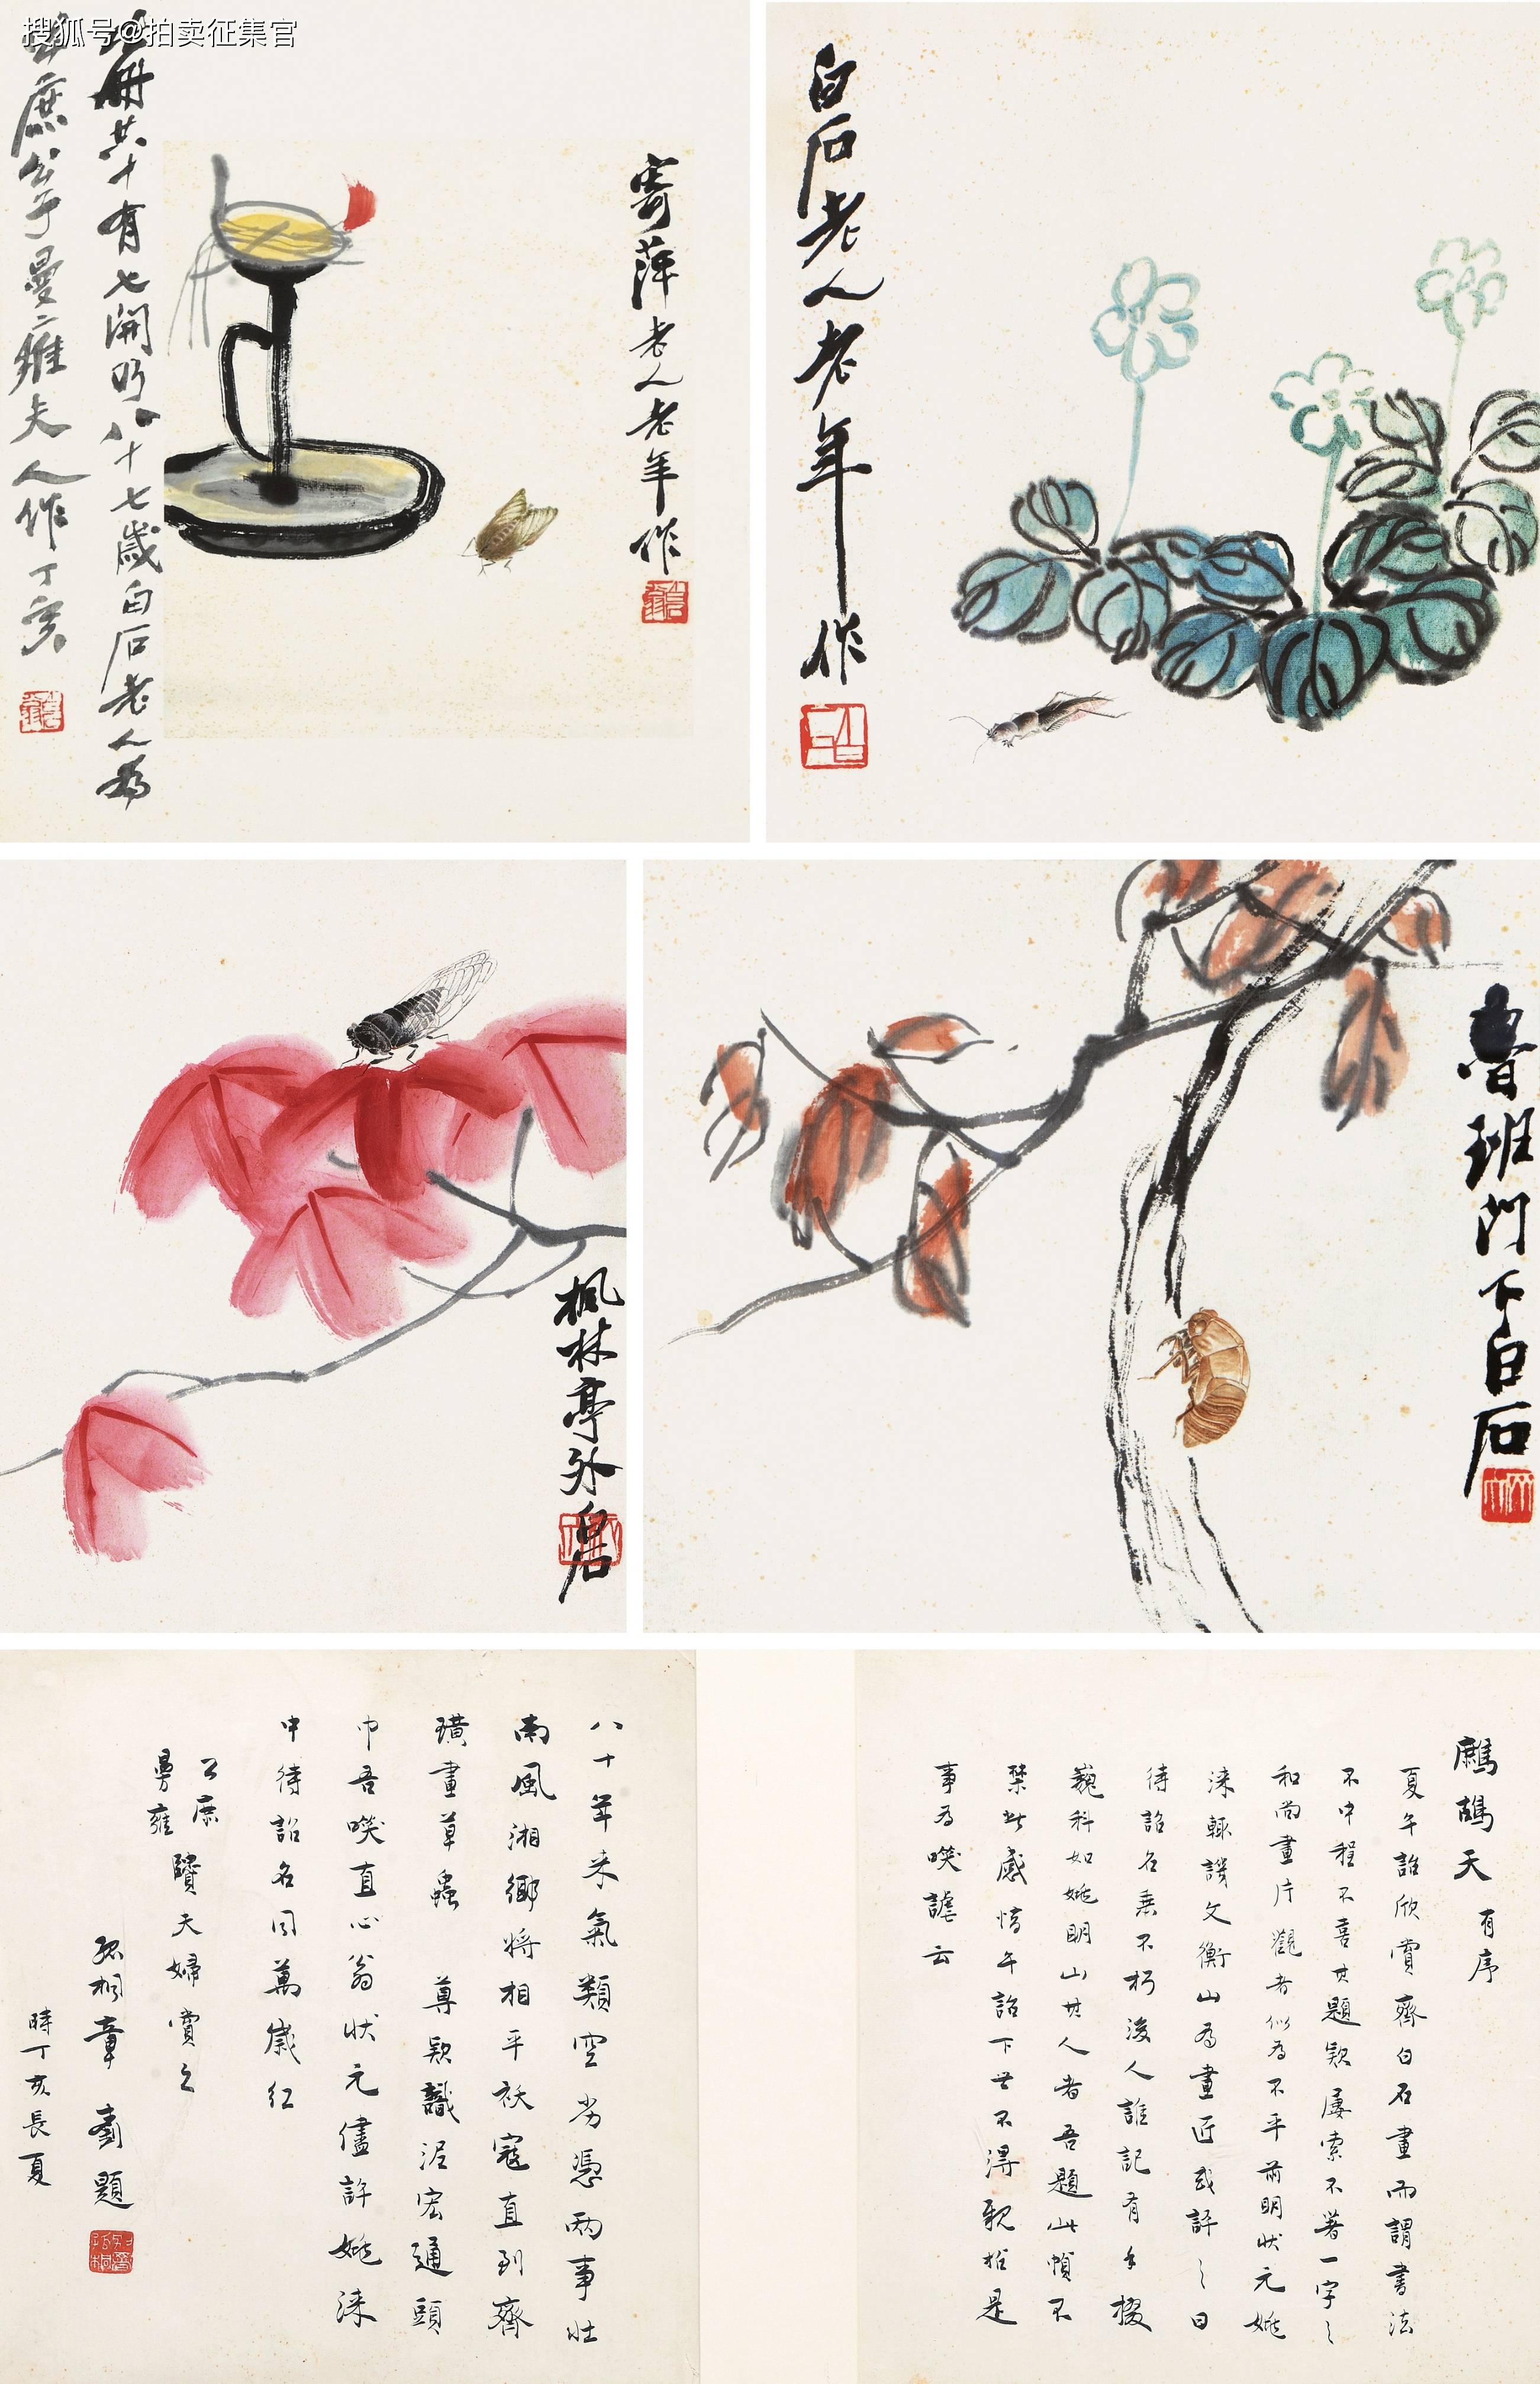 搜狐号@拍卖征集官
册共十有七開明八十七歲白石老人為
公庶曼雍夫人作丁亥
寄萍老人老年作
白石老人老年作
楓林亭外白石
魯班門下白石
鷓鴣天 有序
夏午詒欣賞齊白石畫而謂書法
不中程不喜其題款屢索不著一字之
和尚畫片觀者似為不平前明狀元姚
淶輒譏文衡山為畫匠或評之曰
待詔名垂不朽後人誰記有手掇
巍科如姚明山其人者吾題此幀不
禁些感惜午詒下世不得親推是
事為噗謔云
八十年來氣類空劣憑兩事壯
南風湘鄉將相平袄寇直到齊
璜畫草蟲 尊款識泥宏通頭
巾吾噗直心翁狀元儘許姚淶
中待詔名同萬歲紅
公庶
曼雍賢夫婦賞之
孤桐章 題
時丁亥長夏